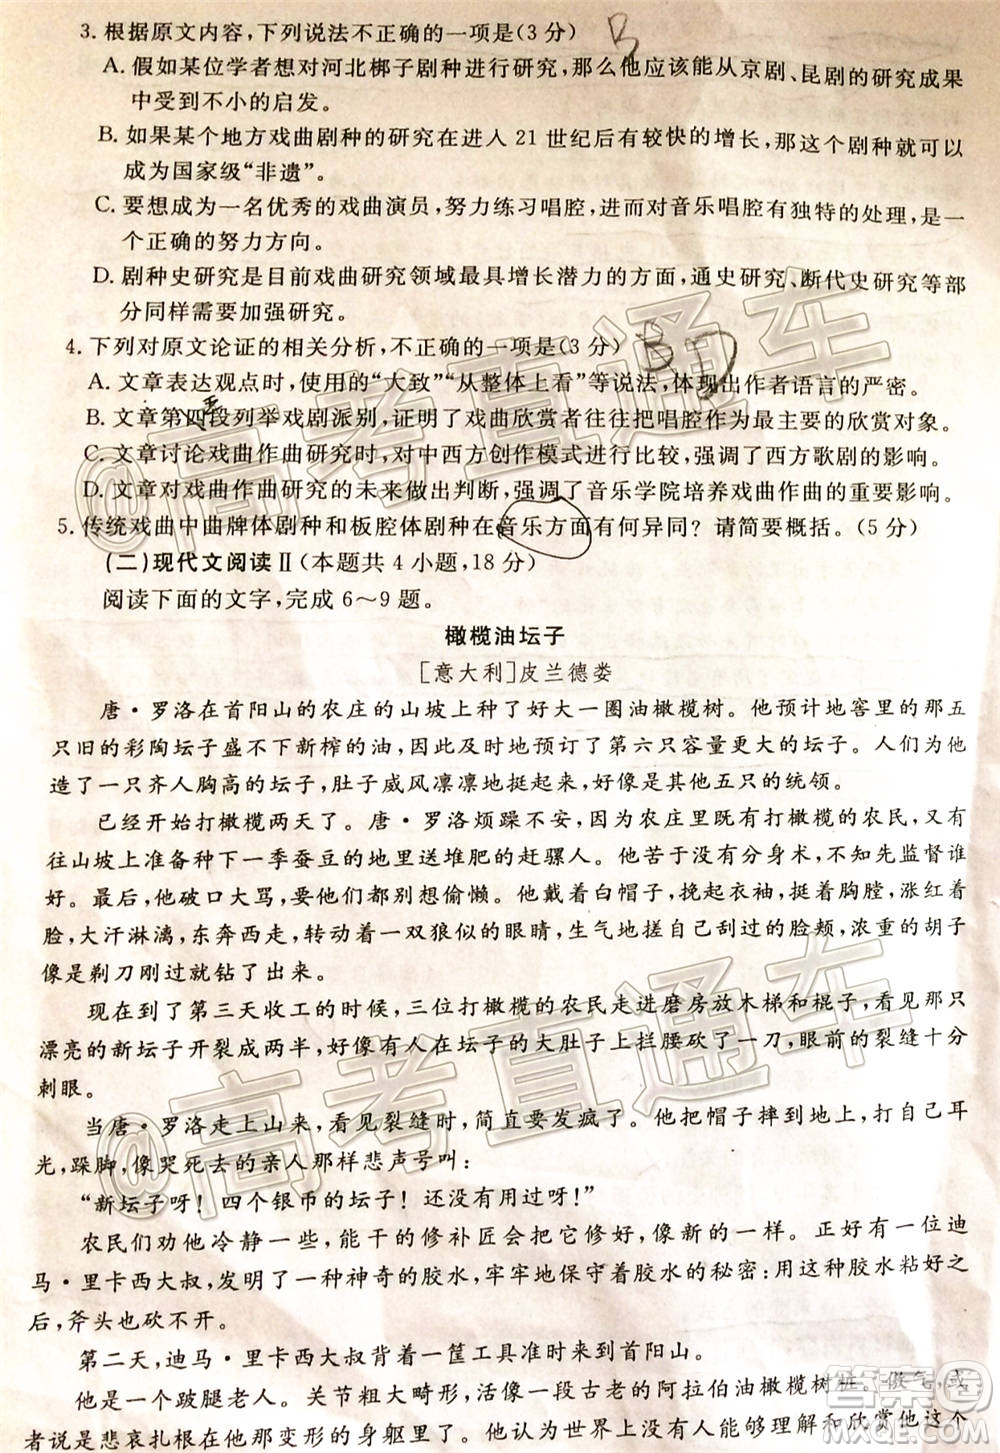 3. 根据原文内容,下列说法不正确的一项是(3分) B
A. 假如某位学者想对河北梆子剧种进行研究,那么他应该能从京剧、昆剧的研究成果
中受到不小的启发。
B. 如果某个地方戏曲剧种的研究在进入 21 世纪后有较快的增长,那这个剧种可以
成为国家级“非遗”。
C. 要想成为一名优秀的戏曲演员,努力练习唱腔,进而对音乐唱腔有独特的处理,是一
个正确的努力方向。
D. 剧种史研究是目前戏曲研究领域最具增长潜力的方面,通史研究、断代史研究等部
分同样需要加强研究。
4. 下列对原文论证的相关分析,不正确的一项是(3分) B D
A. 文章表达观点时,使用的“大致”“从整体上看”等说法,体现出作者语言的严密。
B. 文章第四段列举戏剧派别,证明了戏曲欣赏者往往把唱腔作为最主要的欣赏对象。
C. 文章讨论戏曲作曲研究时,对中西方创作模式进行比较,强调了西方歌剧的严谨。
D. 文章对戏曲作曲研究的未来做出判断,强调了音乐学院培养戏曲作曲的重要影响。
5. 传统戏曲中曲牌体剧种和板腔体剧种在音乐方面有何异同?请简要概括。(5分)
(二)现代文阅读Ⅱ(本题共4小题,18分)
阅读下面的文字,完成6～9题。
橄榄油坛子
[意大利]皮兰德娄
唐·罗洛在首阳山的农庄的山坡上种了好大一圈油橄榄树。他预计地窖里的那五
只旧的彩陶坛子盛不下新榨的油,因此及时地预订了第六只容量更大的坛子。人们为他
造了一只齐人胸高的坛子,肚子威风凛凛地挺起来,好像是其他五只的统领。
已经开始打橄榄两天了。唐·罗洛烦躁不安,因为农庄里有打橄榄的农民,又有
往山坡上准备种下一季蚕豆的地里送堆肥的赶骡人。他苦于没有分身术,不知先监督谁
好。因此,他破口大骂,好像他们都想偷懒。他戴着白帽子,挽起衣袖,挺着胸膛,涨红着
脸,大汗淋漓,东奔西走,转动着一双狼似的眼睛,生气地搓着自己刮过的脸颊,浓重的胡子
像是剃刀刚过就钻了出来。
现在到了第三天收工的时候,三位打橄榄的农民走进磨房放木梯和棍子,看见那只
漂亮的新坛子开裂成两半,好像有人在坛子的大肚子上横着砍了一刀,眼前的裂缝清晰
刺眼。
当唐·罗洛走上山来,看见裂缝时,简直要发疯了。他把帽子摔到地上,打自己耳
光,跺脚,像哭死去的亲人那样悲声号叫:
“新坛子呀!四个银币的坛子!还没有用过呀!”
农民们劝他冷静一些,能干的修补匠会把它修好,像新的一样。正好有一位迪
马·里卡西大叔,发明了一种神奇的胶水,牢牢地保守着胶水的秘密:用这种胶水粘好之
后,斧头也砍不开。
第二天,迪马·里卡西大叔背着一筐工具准时来到首阳山。
他是一个跛腿老人。关节粗大畸形,活像一段古老的阿拉伯油橄榄树桩。傲气,或
者说是悲哀扎根在他的变形的身躯里了。他认为世界上没有人能够理解和欣赏他这个